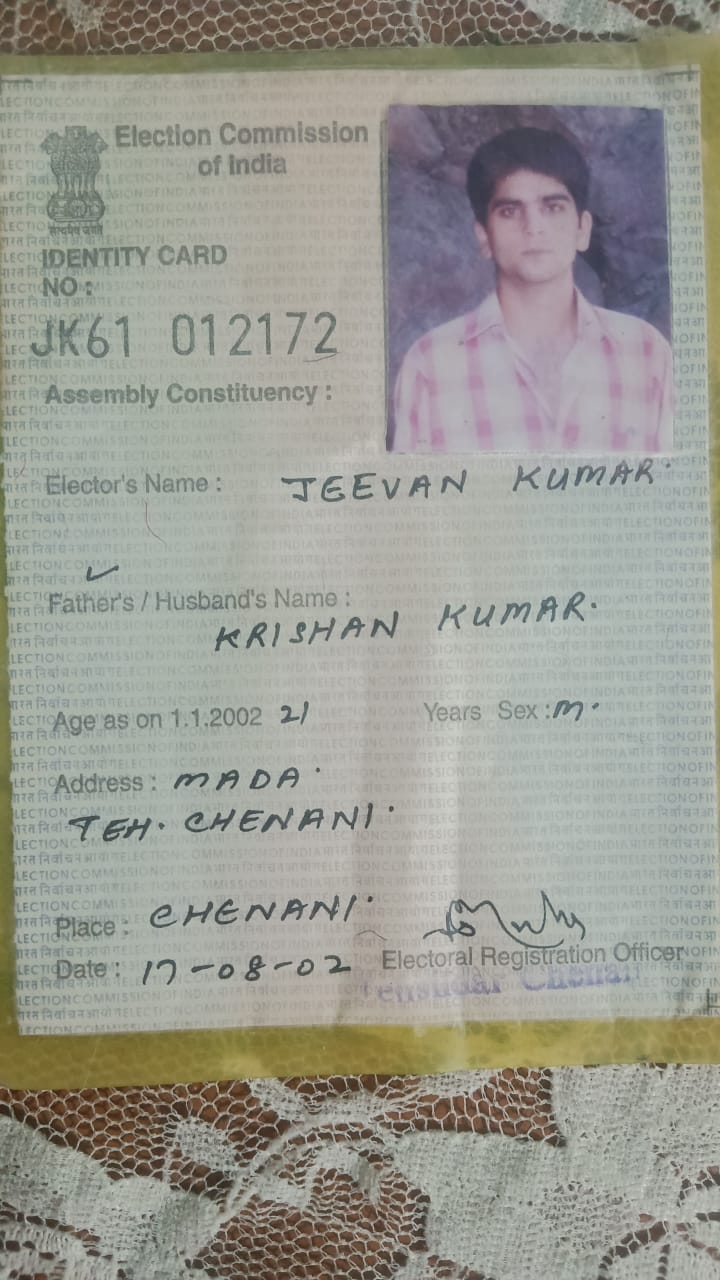 Election Commission
of India
सत्यमेव जयते
IDENTITY CARD
NO :
JK61 012172
Assembly Constituency :
Elector's Name : JEEVAN KUMAR.
Father's / Husband's Name :
KRISHAN KUMAR.
Age as on 1.1.2002 21 Years Sex : M.
Address : MADA.
TEH. CHENANI.
Place : CHENANI.
Date : 17-08-02 Electoral Registration Officer